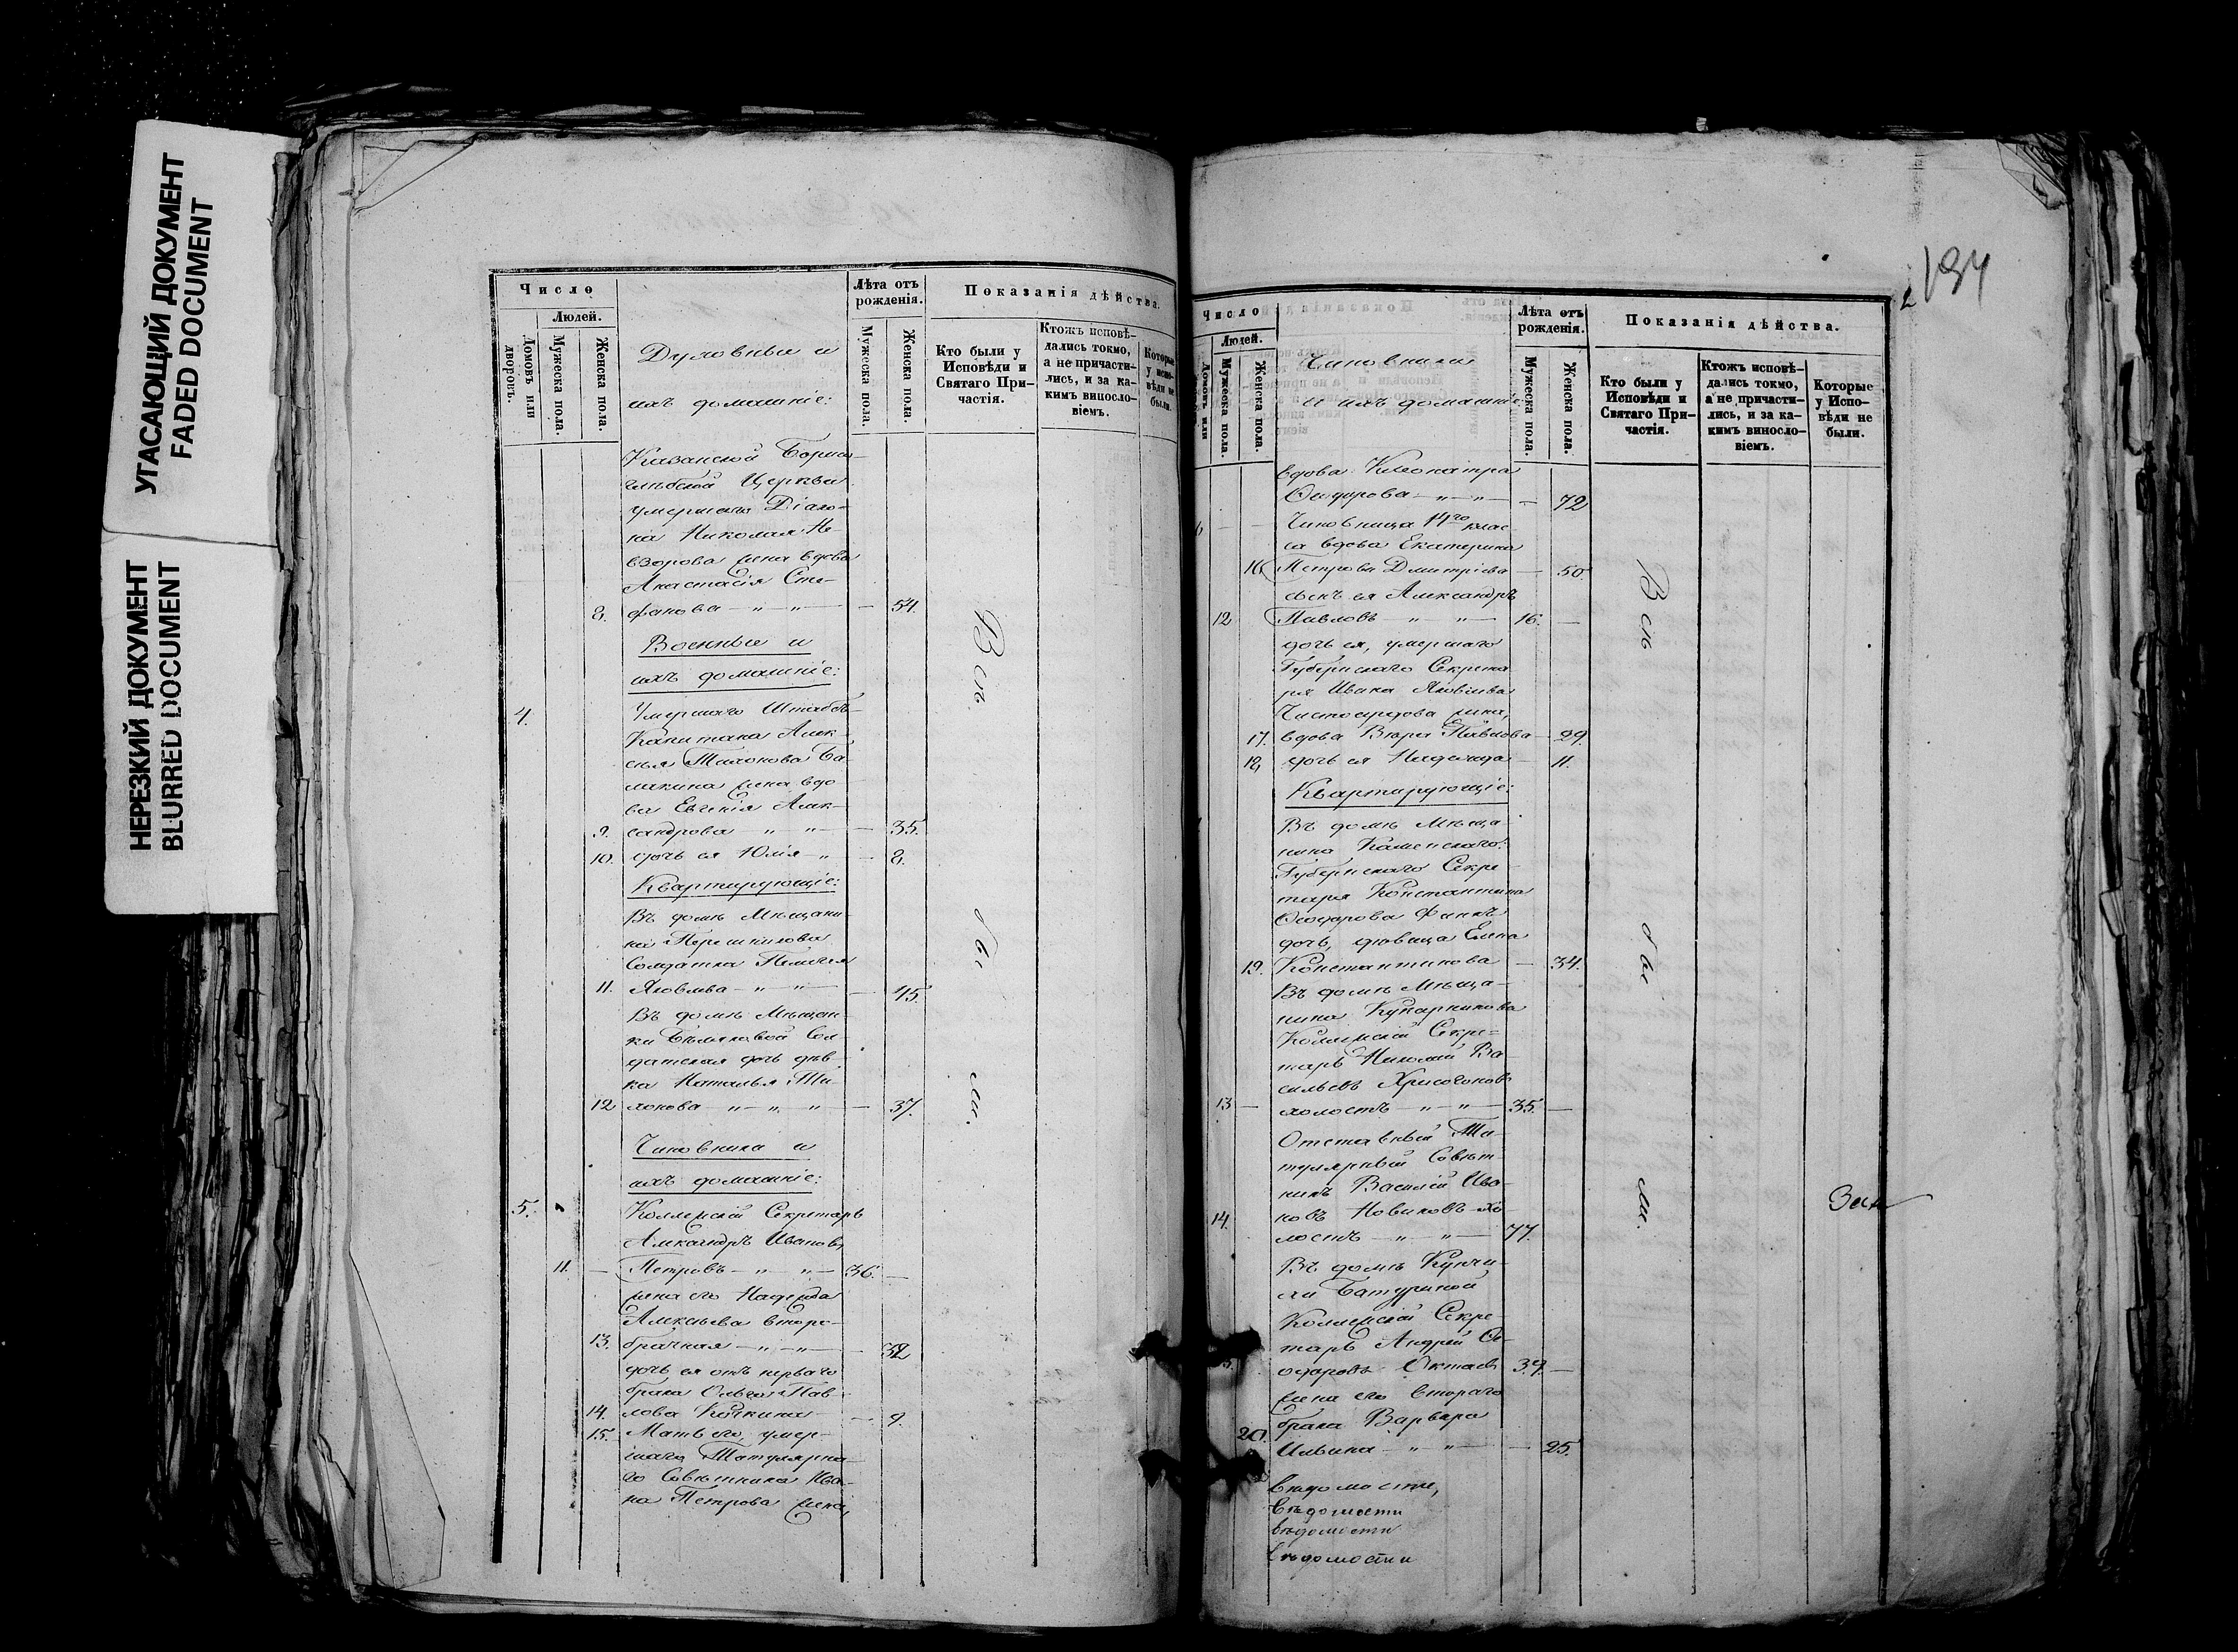 УГАСАЮЩИЙ ДОКУМЕНТ
FADED DOCUMENT
НЕРЕЗКИЙ ДОКУМЕНТ
BLURRED DOCUMENT
Число
Людей.
Домовъ или дворовъ.
Мужеска пола.
Женска пола.
Духовные и
ихъ домашніе:
Лѣта отъ
рожденія.
Мужеска пола.
Женска пола.
Показанія дѣйства.
Кто были у
Исповѣди и
Святаго При-
частія.
Ктожъ исповѣ-
дались токмо,
а не причасти-
лись, и за ка-
кимъ виносло-
віемъ.
Которые
у испо-
вѣди не
были.
Казанской Борисо-
глѣбской Церкви
умершаго Діако-
на Николая Не-
взорова жена вдова
Анастасія Сте-
8. фанова — „ — „ — — 54.
Военные и
ихъ домашніе:
4. Умершаго Штабсъ-
Капитана Алек-
сѣя Тихонова Ба-
жена вдо
ва Евгенія Алек-
9. сандрова — „ — „ — — 35.
10. дочь ея Юлія — „ — 8.
Квартирующіе:
Въ домѣ Мѣщани-
на
Солдатка Пелагея
11. Яковлева — „ — „ — — 45.
Въ домѣ Мѣщан-
ки Бѣляковой Сол-
датская дочь дѣв-
ка Наталья Ти-
12 хонова — „ — „ — „ — 37.
Чиновники и
ихъ домашніе:
5. Коллежскій Секретарь
Александръ Ивановъ
11. — Петровъ — „ — „ — 36. —
жена его Надежда
Алексѣева второ-
13. брачная — „ — „ — — 32
дочь ея отъ перваго
брака Ольга Пав-
14. лова — 9.
15. Мать его, умер-
шаго Титулярна-
го Совѣтника Ива-
на Петрова жена,
Всѣ
бы
ли.
194
Число
Людей.
Домовъ или
Мужеска пола.
Женска пола.
Чиновники
и ихъ домашніе
Лѣта отъ
рожденія.
Мужеска пола.
Женска пола.
Показанія дѣйства.
Кто были у
Исповѣди и
Святаго При-
частія.
Ктожъ исповѣ-
дались токмо,
а не причасти-
лись, и за ка-
кимъ виносло-
віемъ.
Которые
у Испо-
вѣди не
были.
вдова Клеопатра
— „ — „ — — 72
6 — — Чиновница 14го клас-
са вдова Екатерина
16 Петрова Дмитріева — 50.
сынъ ея Александръ
12 Павловъ — „ — „ — 16. —
дочь ея, умершаго
Губернскаго Секрета
ря Ивана Яковлева
жена,
17. вдова Вѣра Павлова — 29.
18. дочь ея Надежда — 11.
Квартирующіе:
Въ домѣ Мѣща-
нина Каменскаго:
Губернскаго Секре-
таря Константина
дочь, дѣвица Елена
19. Константинова — 34.
Въ домѣ Мѣща-
нина
Коллежскій Секре-
тарь Николай Ва-
сильевъ Хрисогоновъ
13 — холостъ — „ — „ — 35. —
Отставный Ти-
тулярный Совѣт-
никъ Василій Ива-
14. новъ Новиковъ хо-
лостъ — „ — „ — 77.
Въ домѣ Купчи-
хи Батуриной
Коллежскій Секре
тарь Андрей Ѳе-
одоровъ 39. —
жена его втораго
брака Варвара
20. Ильина — „ — „ — — 25.
вѣдомости,
вѣдомости
вѣдомости
вѣдомости
Всѣ
бы
ли.